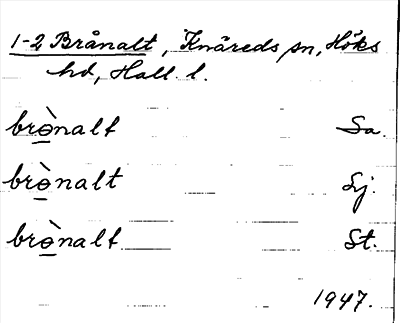 1-2 Brånalt, Knäreds sn, Höks
hd, Hall. l.
brò̲nalt Sa.
brò̲nalt Lj.
brò̲nalt St.
1947.